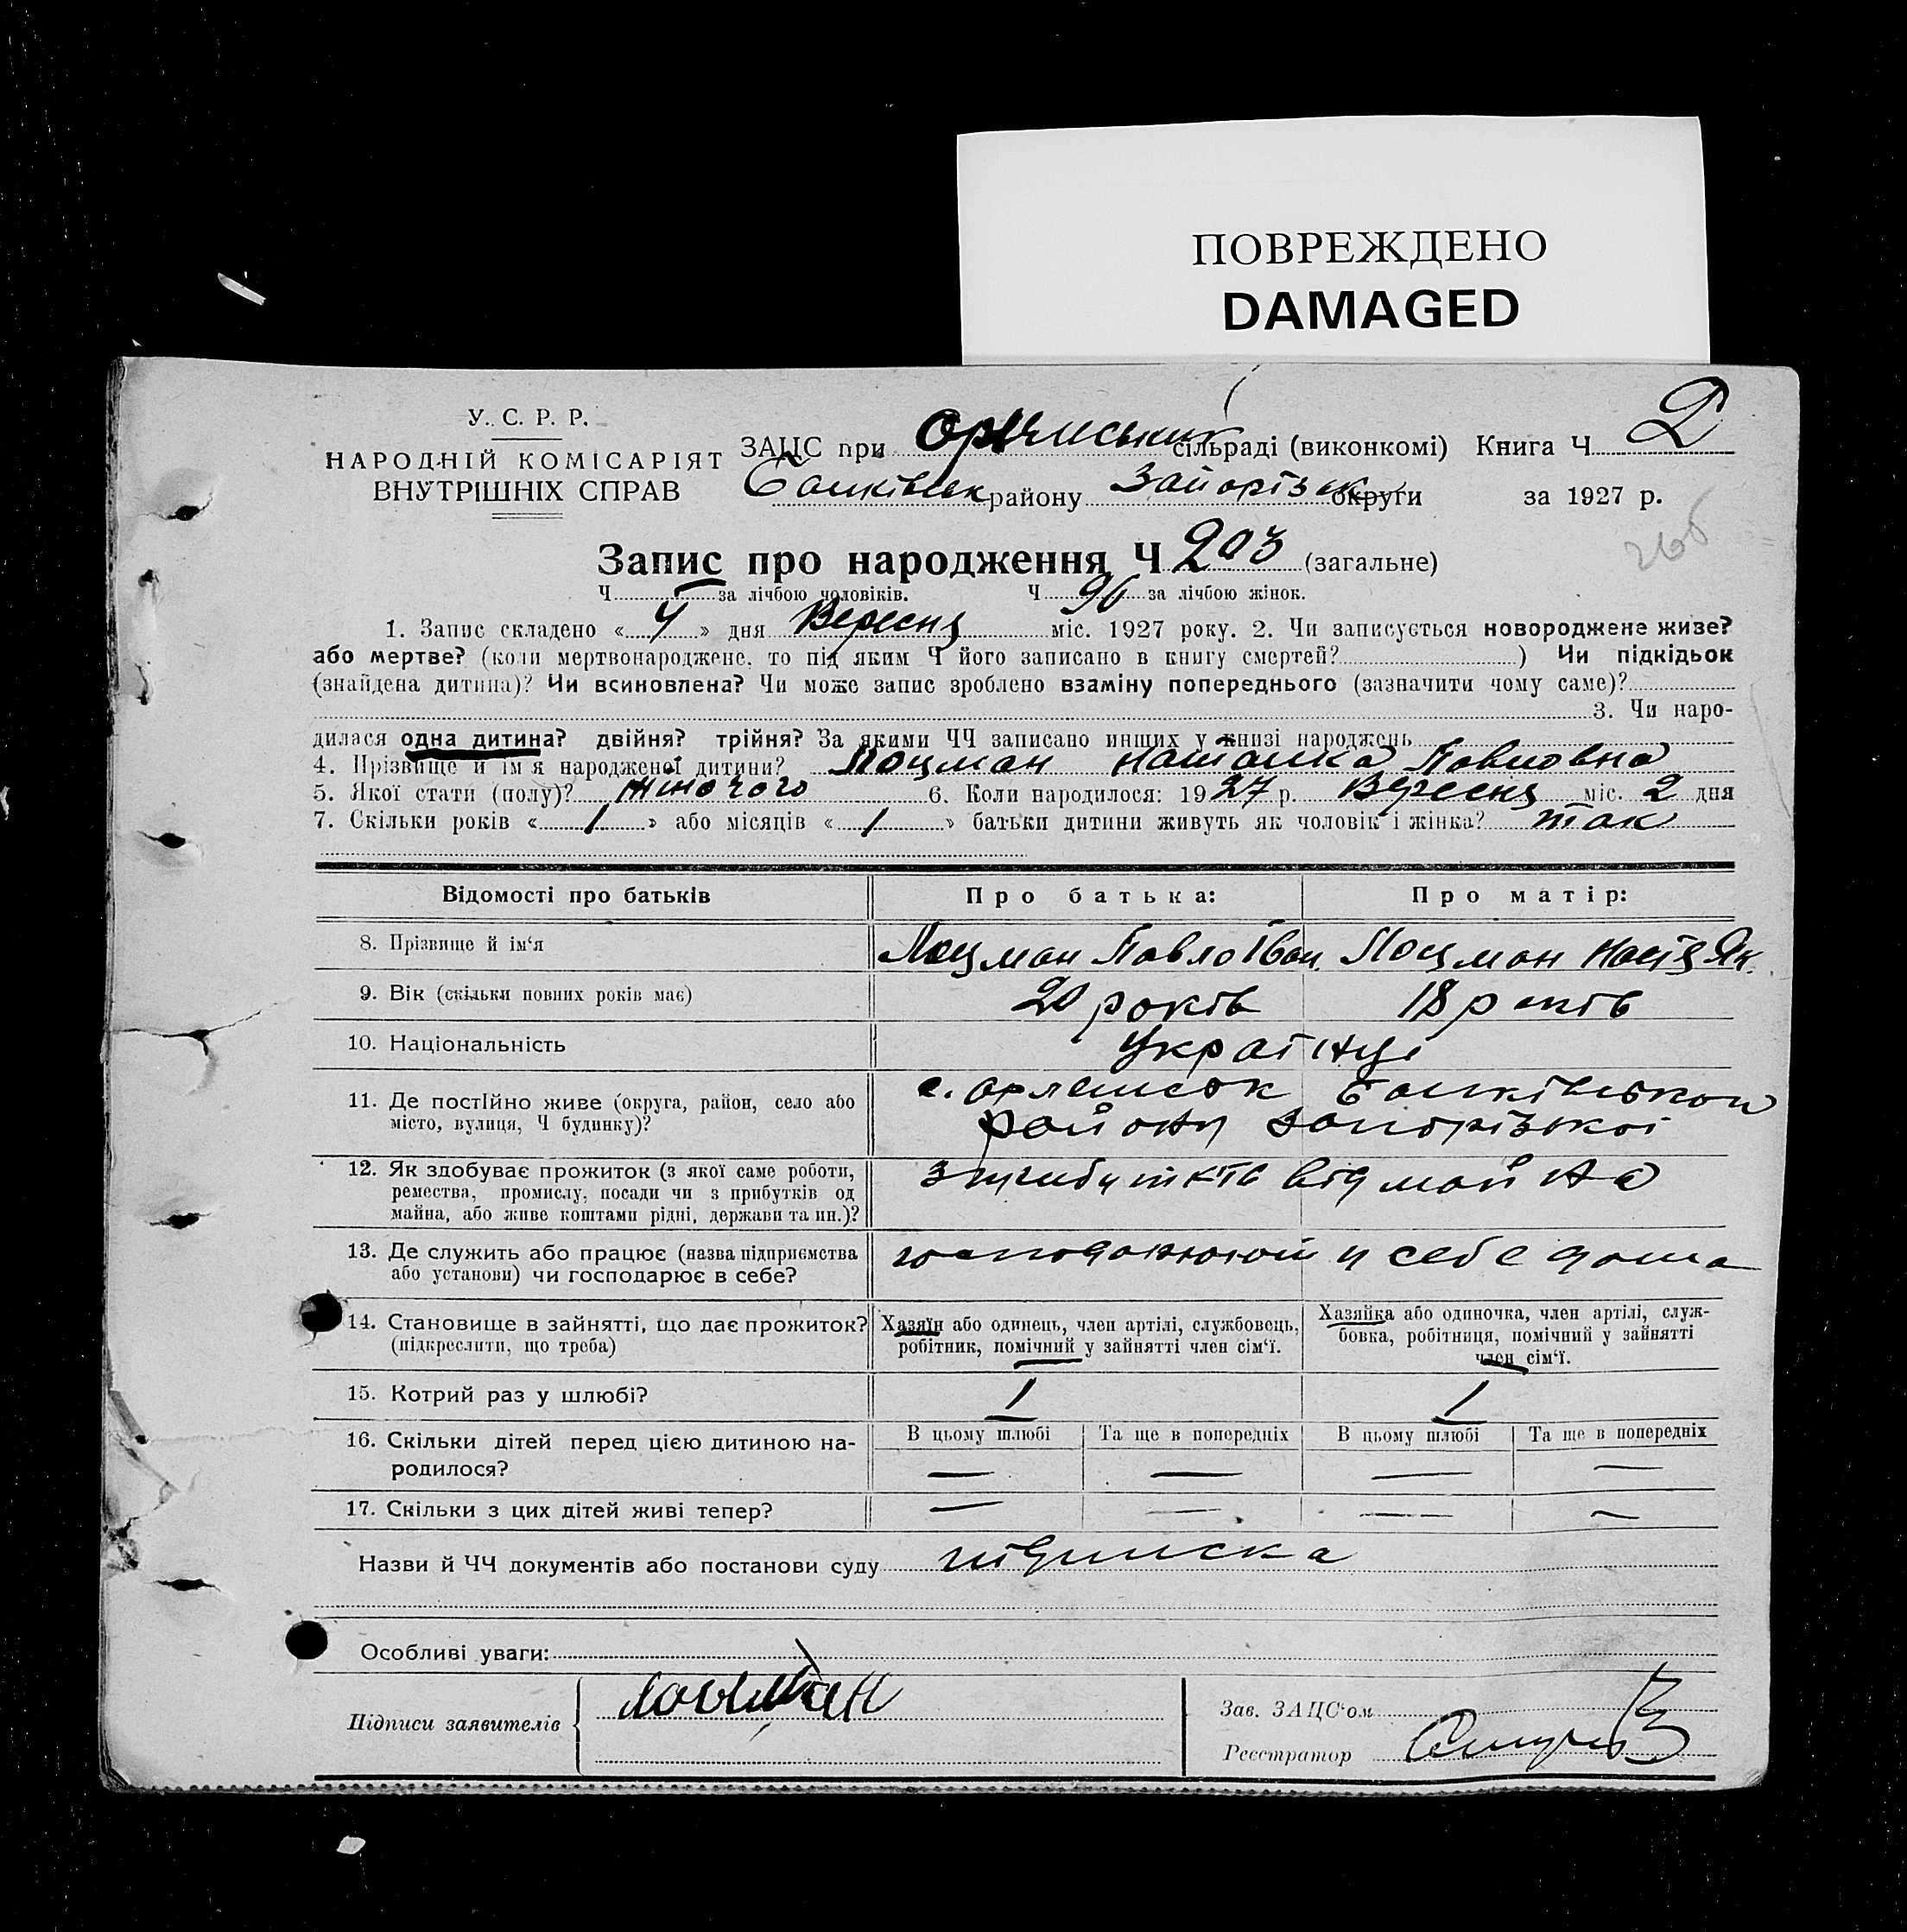 ПОВРЕЖДЕНО
DAMAGED
У. С. Р. Р.
НАРОДНІЙ КОМІСАРІЯТ
ВНУТРІШНІХ СПРАВ
ЗАЦС при сільраді (виконкомі) Книга Ч 2
району округи за 1927 р.
266
Запис про народження Ч 203 (загальне)
Ч за лічбою чоловіків. Ч 96 за лічбою жінок.
1. Запис складено «4» дня Вересня міс. 1927 року. 2. Чи записується новороджене живе?
або мертве? (коли мертвонароджене, то під яким Ч його записано в книгу смертей? ) Чи підкідьок
(знайдена дитина)? Чи всиновлена? Чи може запис зроблено взаміну попереднього (зазначити чому саме)?
3. Чи наро-
дилася одна дитина? двійня? трійня? За якими ЧЧ записано инших у книзі народжень
4. Прізвище й ім'я народженої дитини? Лоцман Наталка Павловна
5. Якої стати (полу)? жіночого 6. Коли народилося: 1927 р. Вересня міс. 2 дня
7. Скільки років «1» або місяців «1» батьки дитини живуть як чоловік і жінка? так
Відомості про батьків Про батька: Про матір:
8. Прізвище й ім'я Лоцман Павло Іван. Лоцман Настя Як.
9. Вік (скільки повних років має) 20 років 18 років
10. Національність Українці
11. Де постійно живе (округа, район, село або
місто, вулиця, Ч будинку)?
с.
району Запорізької
12. Як здобуває прожиток (з якої саме роботи,
ремества, промислу, посади чи з прибутків од
майна, або живе коштами рідні, держави та ин.)?
з прибутків від майна
13. Де служить або працює (назва підприємства
або установи) чи господарює в себе?
у себе дома
14. Становище в зайнятті, що дає прожиток?
(підкреслити, що треба)
Хазяїн або одинець, член артілі, службовець,
робітник, помічний у зайнятті член сім'ї.
Хазяйка або одиночка, член артілі, служ-
бовка, робітниця, помічний у зайнятті
член сім'ї.
15. Котрий раз у шлюбі? 1 1
16. Скільки дітей перед цією дитиною на-
родилося?
В цьому шлюбі Та ще в попередніх В цьому шлюбі Та ще в попередніх
— — — —
17. Скільки з цих дітей живі тепер? — — — —
Назви й ЧЧ документів або постанови суду підписка
Особливі уваги:
Підписи заявителів Лоцман
Зав. ЗАЦС'ом
Реєстратор